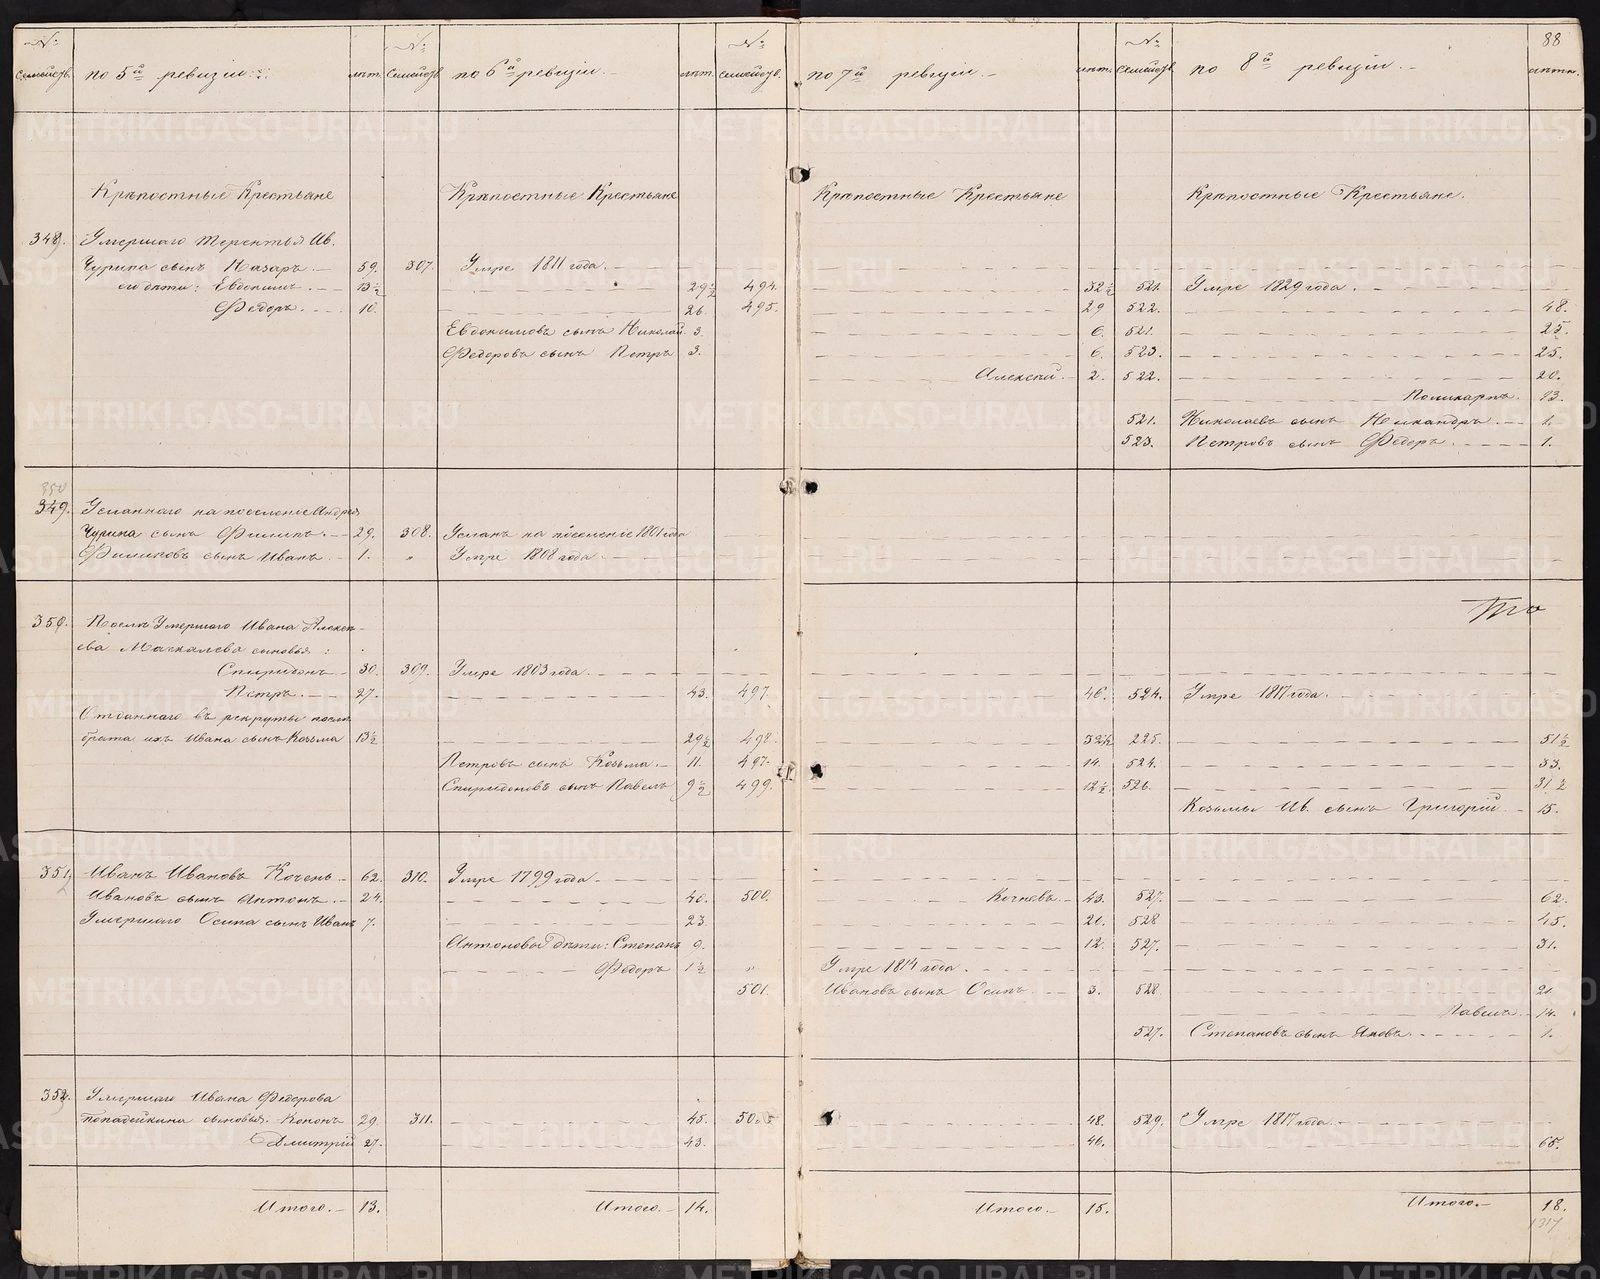 88
№ семейств. по 5й ревизіи лѣт. № Семейств по 6й ревизіи лѣт. № семейств. по 7й ревизіи лѣт. № Семейств по 8й ревизіи лѣтъ.
Крѣпостные Крестьяне Крѣпостные Крестьяне Крѣпостные Крестьяне Крѣпостные Крестьяне.
348. Умершаго Терентья Ив.
Чурина сынъ Назаръ 59. 307. Умре 1811 года.
его дѣти: Евдокимъ. 13½ 29½ 494. 32½ 521. Умре 1829 года.
Ѳедоръ. 10. 26. 495. 29 522. 48.
Евдокимовъ сынъ Николай 3. 6. 521. 25.
Ѳедоровъ сынъ Петръ 3. 6. 523. 25.
Алексѣй. 2. 522. 20.
Поликарпъ. 13.
521. Николаевъ сынъ Никандръ. 1.
523. Петровъ сынъ Ѳедоръ. 1.
350
349. Усланнаго на поселеніе Андрея
Чурина сынъ Филипъ. 29. 308. Усланъ на поселеніе 1801 года
Филиповъ сынъ Иванъ 1. " Умре 1808 года.
То
350. Послѣ Умершаго Ивана Алексѣ-
ева Маскалева сыновья:
Спиридонъ 30. 309. Умре 1803 года.
Петръ. 27. 43. 497. 46. 524. Умре 1817 года.
Отданнаго въ рекруты послѣ
брата ихъ Ивана сынъ Козьма 13½ 29½ 498. 32½ 225. 51½
Петровъ сынъ Козьма. 11. 497. 14. 524. 33.
Спиридоновъ сынъ Павелъ 9½ 499. 12½ 526. 31½
Козьмы Ив. сынъ Григорій 15.
351. Иванъ Ивановъ Кочень 62. 310. Умре 1799 года.
2 Ивановъ сынъ Антонъ. 24. 40. 500. Кочневъ. 43. 527. 62.
Умершаго Осипа сынъ Иванъ 7. 23. 26. 528 45.
Антоновы дѣти: Степанъ 9. 12. 527. 31.
Ѳедоръ 1½ " Умре 1814 года.
501. Ивановъ сынъ Осипъ 3. 528 21.
Павелъ. 14.
527. Степановъ сынъ Яковъ. 1.
352. Умершаго Ивана Ѳедорова
Попадейкина сыновья. Кононъ 29. 311. 45. 48. 529. Умре 1817 года.
Дмитрій 27. 43. 46. 65.
Итого. 13. Итого. 14. Итого. 15. Итого. 18.
1317
METRIKI.GASO-URAL.RU